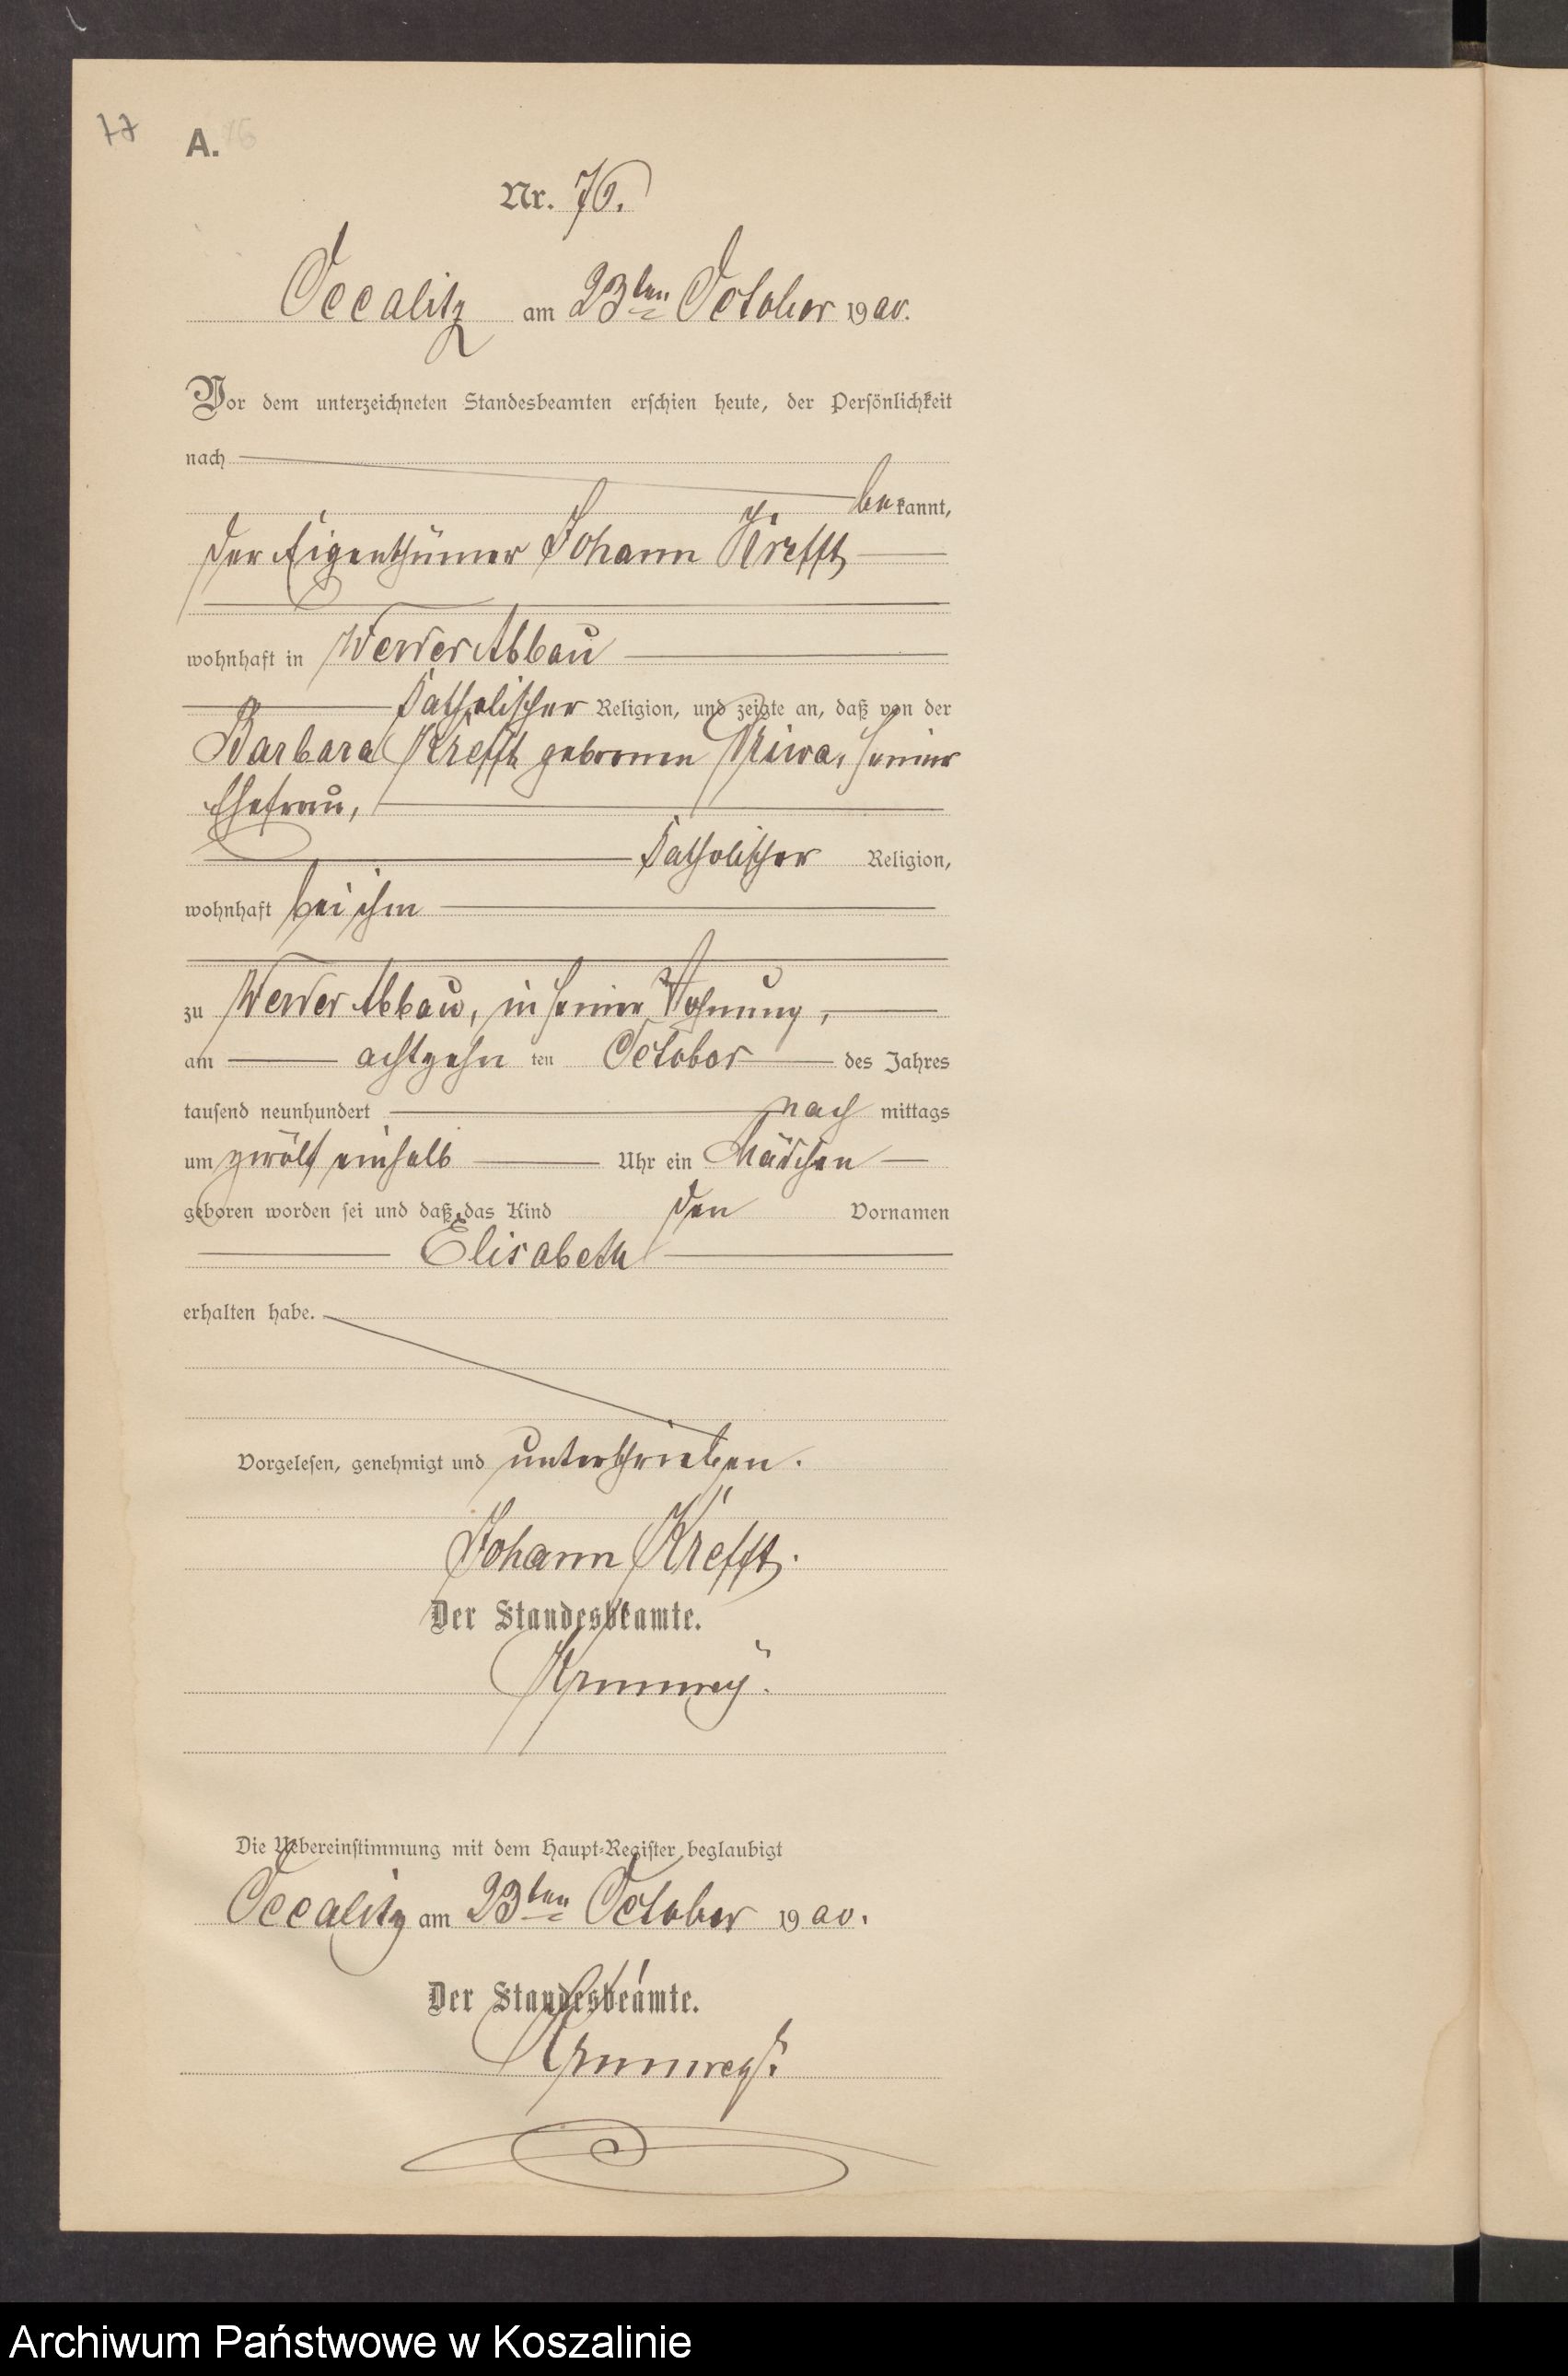 77
A. 76
Nr. 76.
Occalitz am 23ten October 1900.
Vor dem unterzeichneten Standesbeamten erschien heute, der Persönlichkeit
nach
bekannt,
der Eigenthümer Johann Krefft
wohnhaft in Werder Abbau
katholischer Religion, und zeigte an, daß von der
Barbara Krefft geborenen seiner
Ehefrau,
katholischer Religion,
wohnhaft bei ihm
zu Werder Abbau, in seiner Wohnung,
am achtzehn ten October des Jahres
tausend neunhundert nach mittags
um zwölf einhalb Uhr ein Mädchen
geboren worden sei und daß das Kind den Vornamen
Elisabeth
erhalten habe.
Vorgelesen, genehmigt und unterschrieben.
Johann Krefft.
Der Standesbeamte.
Die Uebereinstimmung mit dem Haupt-Register beglaubigt
Occalitz am 23ten October 1900.
Der Standesbeamte.
Archiwum Państwowe w Koszalinie